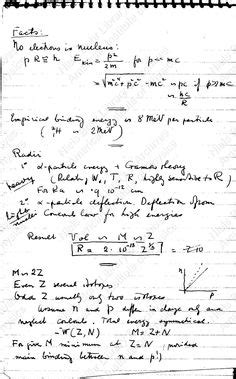 Facts:
No electrons in nucleus:
p R ≅ ħ   E_kin = p²/2m   for p << mc
= √(m²c⁴ + p²c²) - mc² ≈ pc if p >> mc
≈ ħc/R
Empirical binding energy ≈ 8 MeV per particle
( ²H ≈ 2 MeV )
Radii
1° α-particle energy + Gamow theory
heavy (Relate, T, R, highly sensitive to R)
For Ra ≈ ·9 10⁻¹² cm
2° α-particle deflection. Deflection from
Light Coulomb law for high energies
nuclei
Result   Vol ≈ M ≈ Z
R = 2·10⁻¹³ Z^1/3   Z>10
M ≈ 2Z
Even Z several isotopes
Odd Z usually only two isotopes
Assume n and p differ in charge only and
neglect coulomb. Total energy symmetrical.
-W(Z,N)   M = Z+N
For given M minimum at Z=N (provided
main binding between n and p!)
n
P